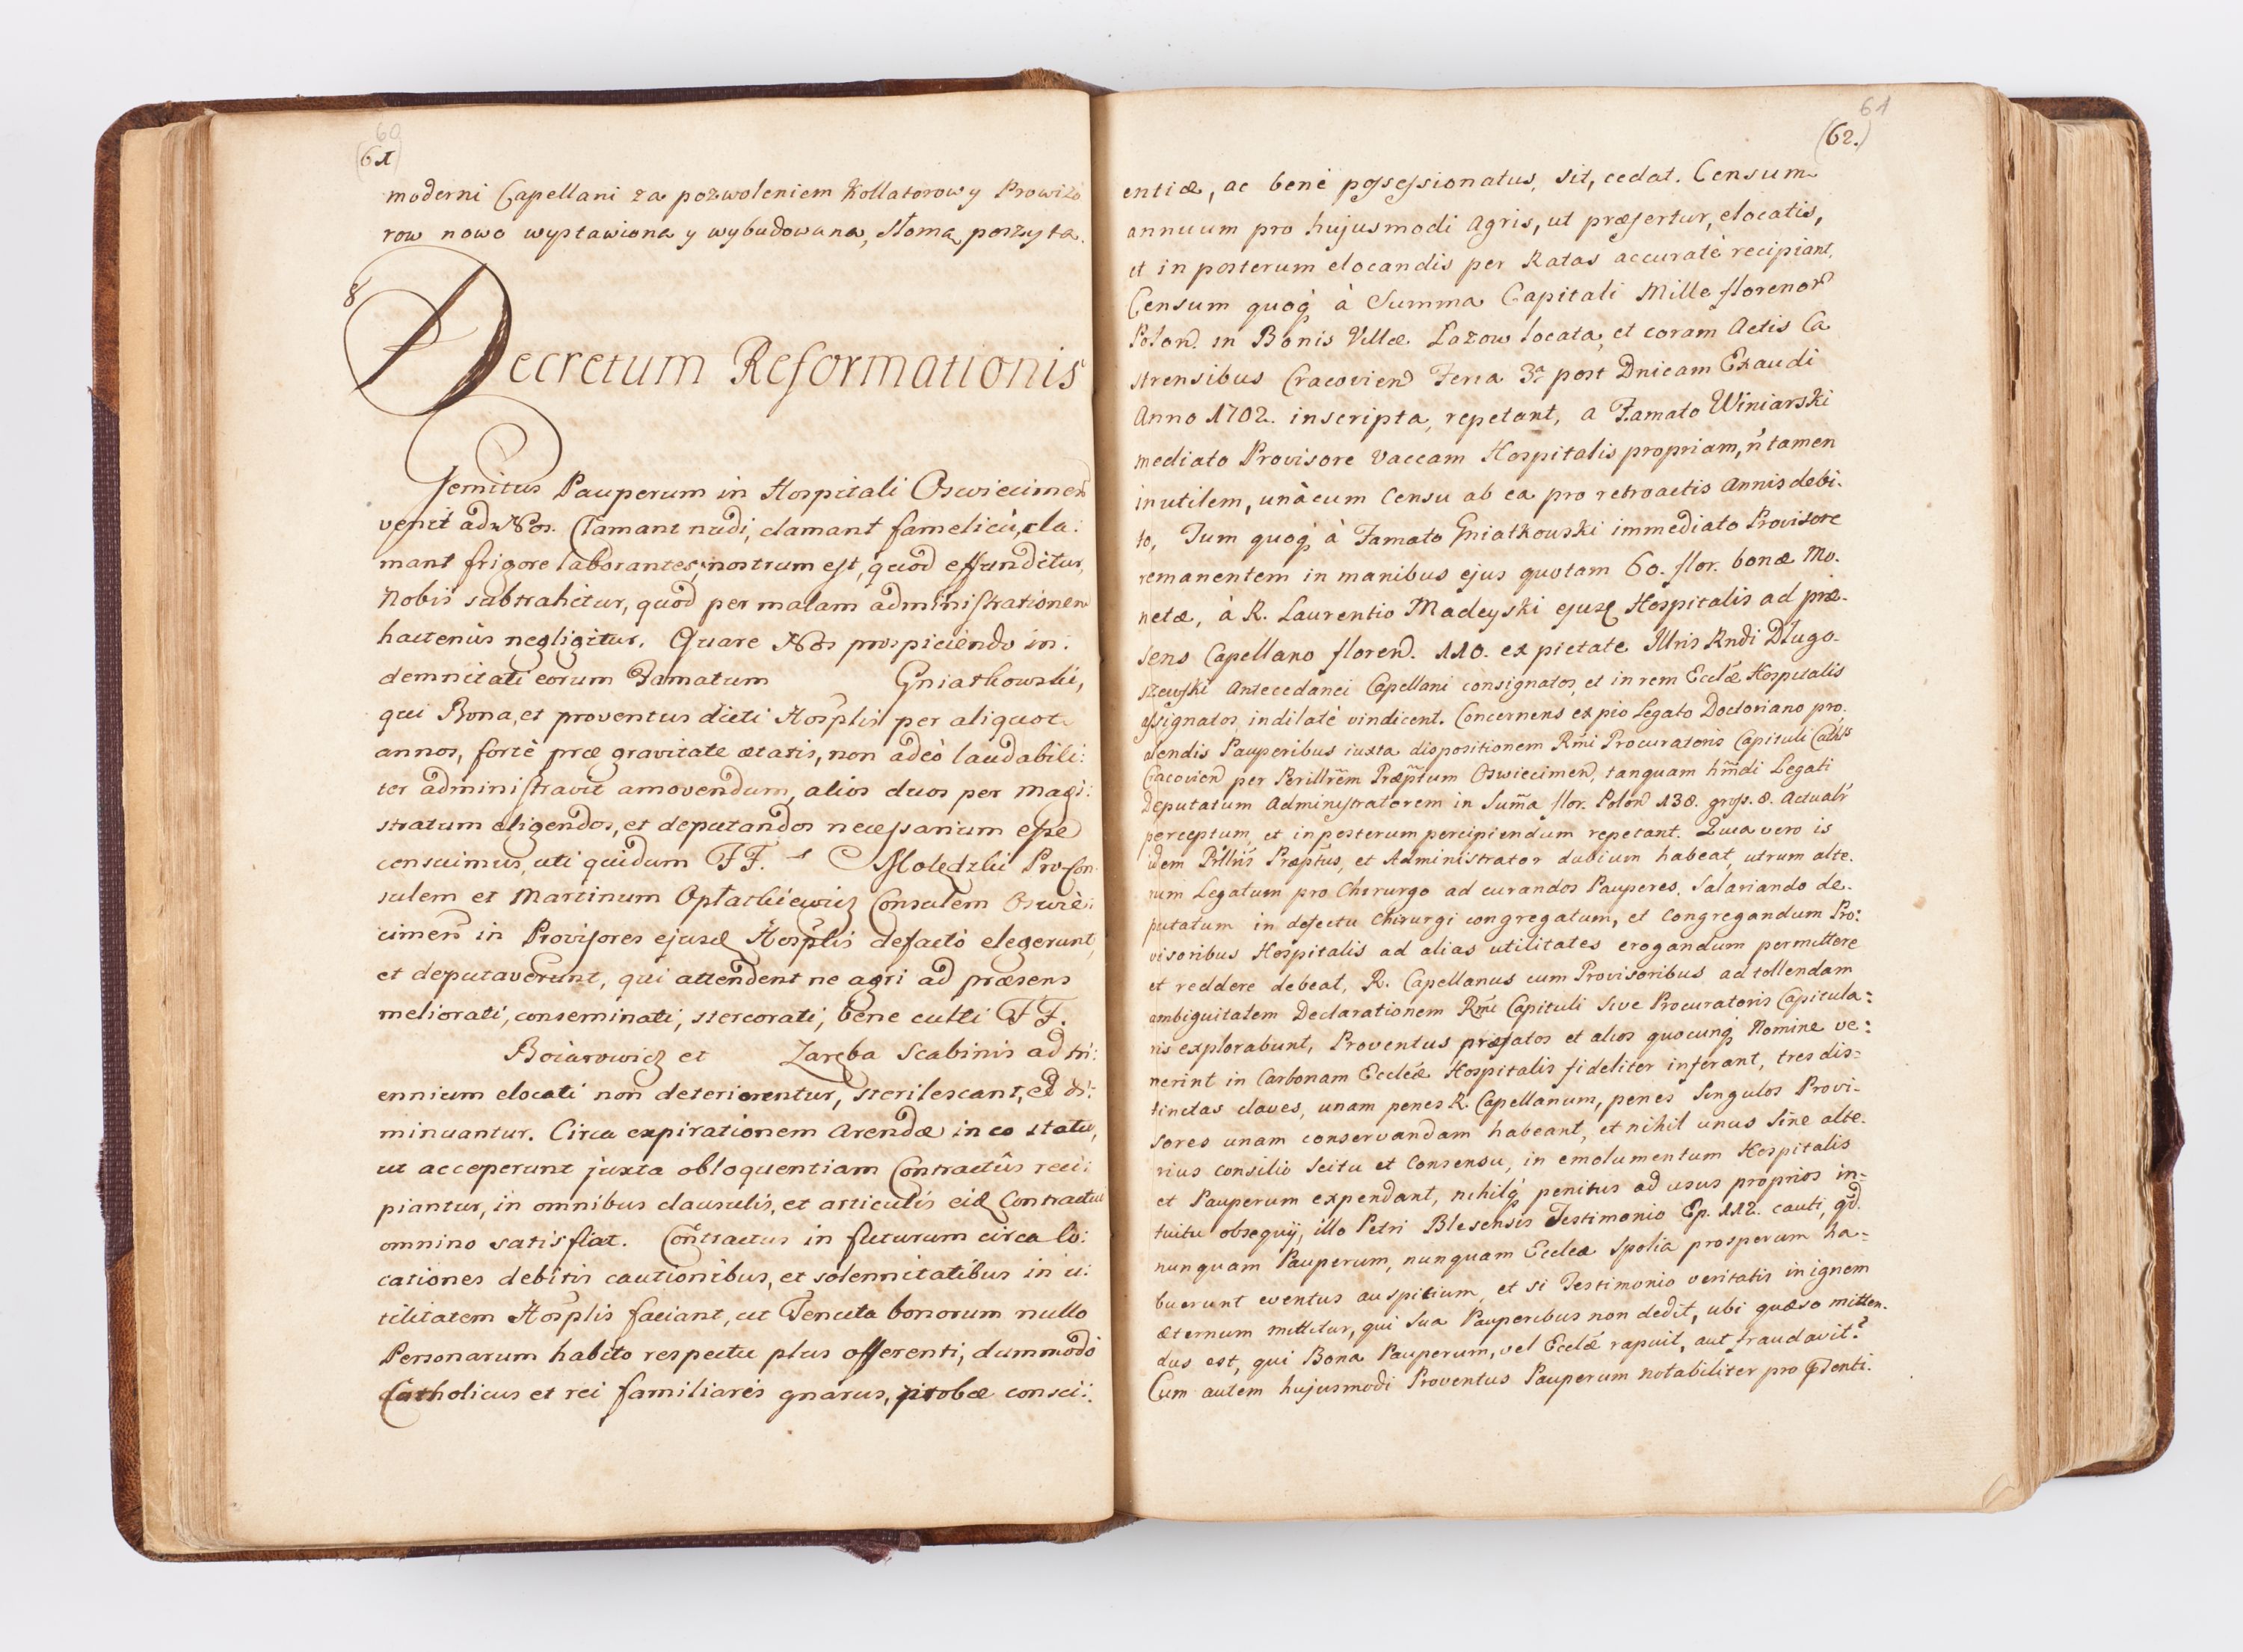 60
(61)
moderni Capellani za pozwoleniem Kollatorow y Prowizo
row nowo wystawiona y wybudowana, słomą poszyta.
8
Decretum Reformationis
Gemitus Pauperum in Hospitali Oswiecimen
venit ad Nos. Clamant nudi, clamant famelici, cla:
mant frigore laborantes, nostrum est, quod effunditur,
Nobis subtrahitur, quod per malam administrationem
hactenus negligitur. Quare Nos prospiciendo in:
demnitati eorum Famatum Gniatkowski,
qui Bona, et proventus dicti Hosplis per aliquot
annos, fortè præ gravitate ætatis, non adeò laudabili:
ter administravit amovendum, alios duos per Magi:
stratum eligendos, et deputandos necessarium esse
censuimus, uti quidum FF. Moledzki ProCon
sulem et Martinum Opłatkiewicz Consulem Oswie:
cimen in Provisores ejusd Hosplis defactò elegerunt,
et deputaverunt, qui attendent ne agri ad præsens
meliorati, conseminati, stercorati, bene culti FF.
Boiarowicz et Zaręba Scabinis ad tri:
ennium elocati non deteriorentur, sterilescant, et di:
minuantur. Circa expirationem Arendæ in eo statu,
ut acceperunt juxta obloquentiam Contractûs reci:
piantur, in omnibus clausulis, et articulis eid Contractui
omnino satisfiat. Contractus in futurum circa lo:
cationes debitis cautionibus, et solennitatibus in u:
tilitatem Hosplis faciant, ut Tenuta bonorum nullo
Personarum habito respectu plus offerenti, dummodò
Catholicus et rei familiaris gnarus, probæ consci:
61
(62.)
entiæ, ac benè possessionatus, sit, cedat. Censum
annuum pro hujusmodi Agris, ut præfertur, elocatis,
et in posterum elocandis per Ratas accuratè recipiant,
Censum quoq à Summa Capitali Mille florenor
Polon. in Bonis Villæ Łazow locata, et coram Actis Ca
strensibus Cracovien Feria 3a post Dnicam Exaudi
Anno 1702. inscripta, repetant, a Famato Winiarski
mediato Provisore Vaccam Hospitalis propriam, n tamen
inutilem, unàcum Censu ab ea pro retroactis Annis debi.
to, Tum quoq à Famato Gniatkowski immediato Provisore
remanentem in manibus ejus quotam 60. flor. bonæ Mo.
netæ, à R. Laurentio Madeyski ejusd Hospitalis ad præ.
sens Capellano floren. 110. ex pietate Illris Rndi Długo.
szewski Antecedanei Capellani consignatos, et in rem Ecclæ Hospitalis
assignatos, indilatè vindicent. Concernens ex pio Legato Doctoriano pro.
alendis Pauperibus iuxta dispositionem Rmi Procuratoris Capituli Cathlis
Cracovien per Perillrem Præptum Oswiecimen, tanquam hmdi Legati
deputatum Administratorem in Suma flor. Polon 138. gross. 8. Actualr
perceptum, et in posterum percipiendum repetant. Quia vero is
idem Pillris Præptus, et Administrator dubium habeat, utrum alte.
rum Legatum pro Chirurgo ad curandos Pauperes, Salariando de.
putatum in defectu Chirurgi congregatum, et Congregandum Pro:
visoribus Hospitalis ad alias utilitates erogandum permittere
et reddere debeat, R. Capellanus cum Provisoribus ad tollendam
ambiguitatem Declarationem Rmi Capituli sive Procuratoris Capitula:
ris explorabunt, Proventus præfatos et alios quocunq Nomine ve:
nerint in Carbonam Ecclæ Hospitalis fideliter inferant, tres dis=
tinctas claves, unam penes R. Capellanum, penes Singulos Provi.
sores unam conservandam habeant, et nihil unus Sine alte.
rius consilio Scitu et Consensu, in emolumentum Hospitalis
et Pauperum expendant, nihilq penitus ad usus proprios in=
tuitu obsequij, illo Petri Blesensis Testimonio Ep. 112. cauti, qd
nunquam Pauperum, nunquam Ecclæ spolia prosperum ha=
buerunt eventus auspitium, et si Testimonio veritatis in ignem
æternum mittitur, qui Sua Pauperibus non dedit, ubi quæso mitten.
dus est, qui Bona Pauperum, vel Ecclæ rapuit, aut fraudavit?
Cum autem hujusmodi Proventus Pauperum notabiliter pro